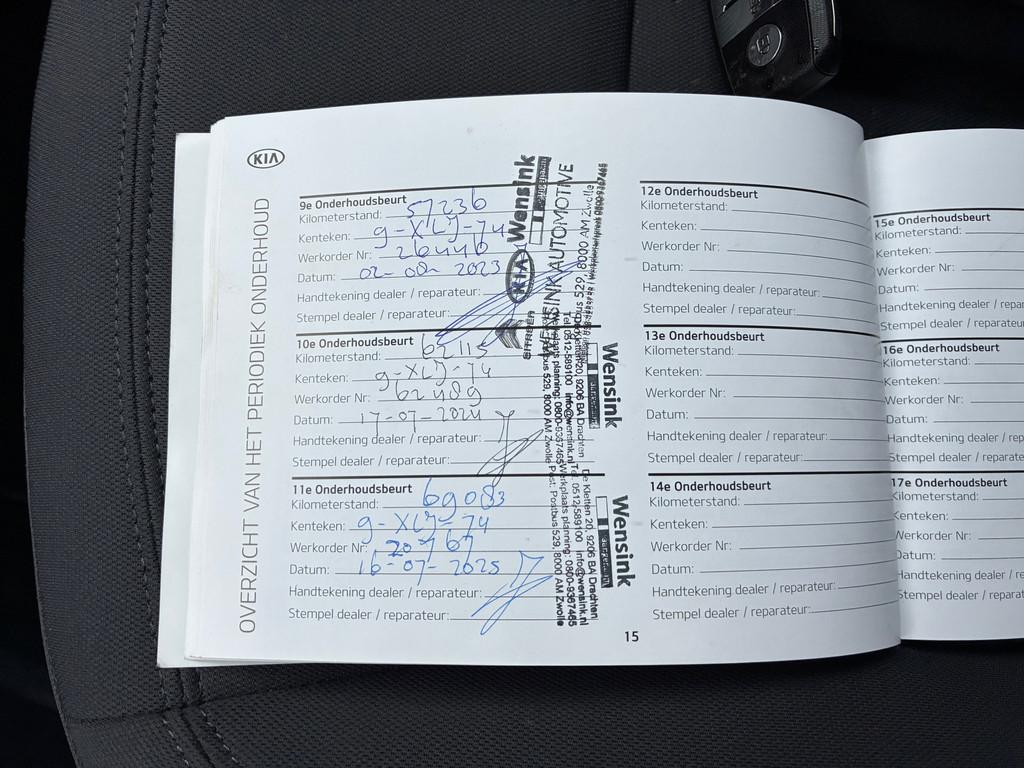 KIA
OVERZICHT VAN HET PERIODIEK ONDERHOUD
9e Onderhoudsbeurt
Kilometerstand: 57236
Kenteken: g-XLJ-74
Werkorder Nr: 26446
Datum: 02-08-2023
Handtekening dealer / reparateur:
Stempel dealer / reparateur:
10e Onderhoudsbeurt
Kilometerstand: 62115
Kenteken: g-XLJ-74
Werkorder Nr: 62489
Datum: 17-07-2024
Handtekening dealer / reparateur:
Stempel dealer / reparateur:
11e Onderhoudsbeurt
Kilometerstand: 69083
Kenteken: g-XLJ-74
Werkorder Nr:
Datum: 16-07-2025
Handtekening dealer / reparateur:
Stempel dealer / reparateur:
Wensink
KIA
AUTOMOTIVE
529, 8000 AM Zwolle
Wensink
20, 9206 BA Drachten
Tel. 0512-589100 info@wensink.nl
Werkplaats planning: 0800-9367465
Postbus 529, 8000 AM Zwolle
Wensink
De Kletten 20, 9206 BA Drachten
Tel. 0512-589100 info@wensink.nl
Werkplaats planning: 0800-9367465
Post: Postbus 529, 8000 AM Zwolle
12e Onderhoudsbeurt
Kilometerstand:
Kenteken:
Werkorder Nr:
Datum:
Handtekening dealer / reparateur:
Stempel dealer / reparateur:
13e Onderhoudsbeurt
Kilometerstand:
Kenteken:
Werkorder Nr:
Datum:
Handtekening dealer / reparateur:
Stempel dealer / reparateur:
14e Onderhoudsbeurt
Kilometerstand:
Kenteken:
Werkorder Nr:
Datum:
Handtekening dealer / reparateur:
Stempel dealer / reparateur:
15
15e Onderhoudsbeurt
Kilometerstand:
Kenteken:
Werkorder Nr:
Datum:
Handtekening dealer / repar
Stempel dealer / reparateur
16e Onderhoudsbeurt
Kilometerstand:
Kenteken:
Werkorder Nr:
Datum:
Handtekening dealer / rep
Stempel dealer / reparate
17e Onderhoudsbeurt
Kilometerstand:
Kenteken:
Werkorder Nr:
Datum:
Handtekening dealer / re
Stempel dealer / reparat